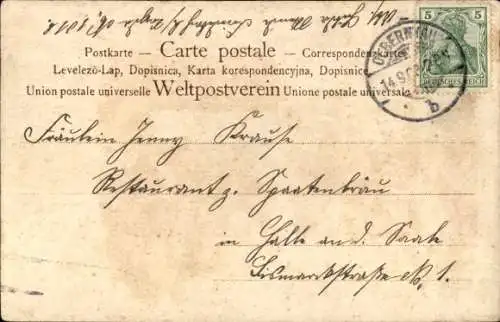 Postkarte — Carte postale — Correspondenzkarte
Levelező-Lap, Dopisnica, Karta korespondencyjna, Dopisnice
Union postale universelle Weltpostverein Unione postale universale
5 5
DEUTSCHES REICH
14.9.
b
Fräulein Jenny Krause
Restaurant z. Spaatenbräu
in Halle an d. Saale
Bismarckstraße No. 1.